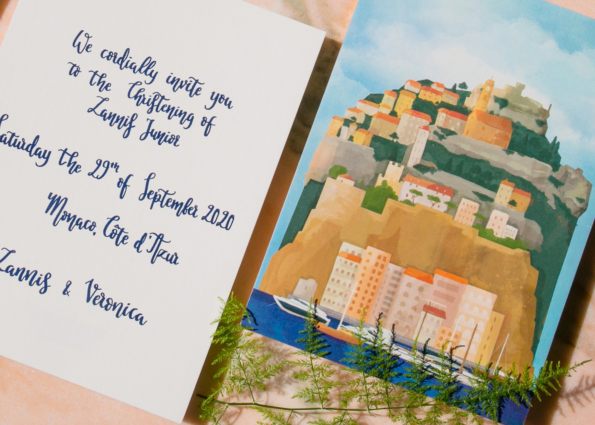 We cordially invite you
to the Chriftening of
Zannis Junior
Saturday the 29th of September 2020
Monaco, Côte d'Azur
Zannis & Veronica